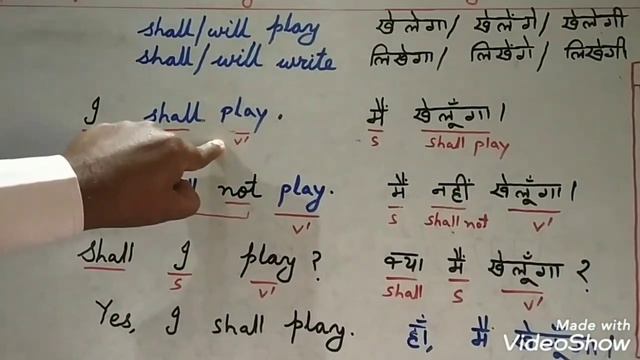 shall/will play खेलेगा/ खेलेंगे/ खेलेगी
shall/will write लिखेगा/ लिखेंगे/ लिखेगी
I shall play. मैं खेलूँगा।
v' s shall play
not play. मैं नहीं खेलूँगा।
v' s shall not v'
Shall I play? क्या मैं खेलूँगा?
s v' shall s v'
Yes, I shall play. हाँ, मैं खेलूँगा।
Made with
VideoShow